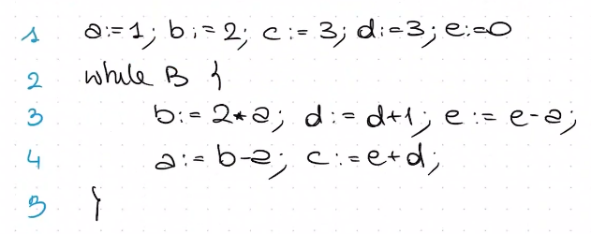 1 a:=1; b:=2; c:=3; d:=3; e:=0
2 while B {
3 b:=2*a; d:=d+1; e:=e-a;
4 a:=b-a; c:=e+d;
5 }